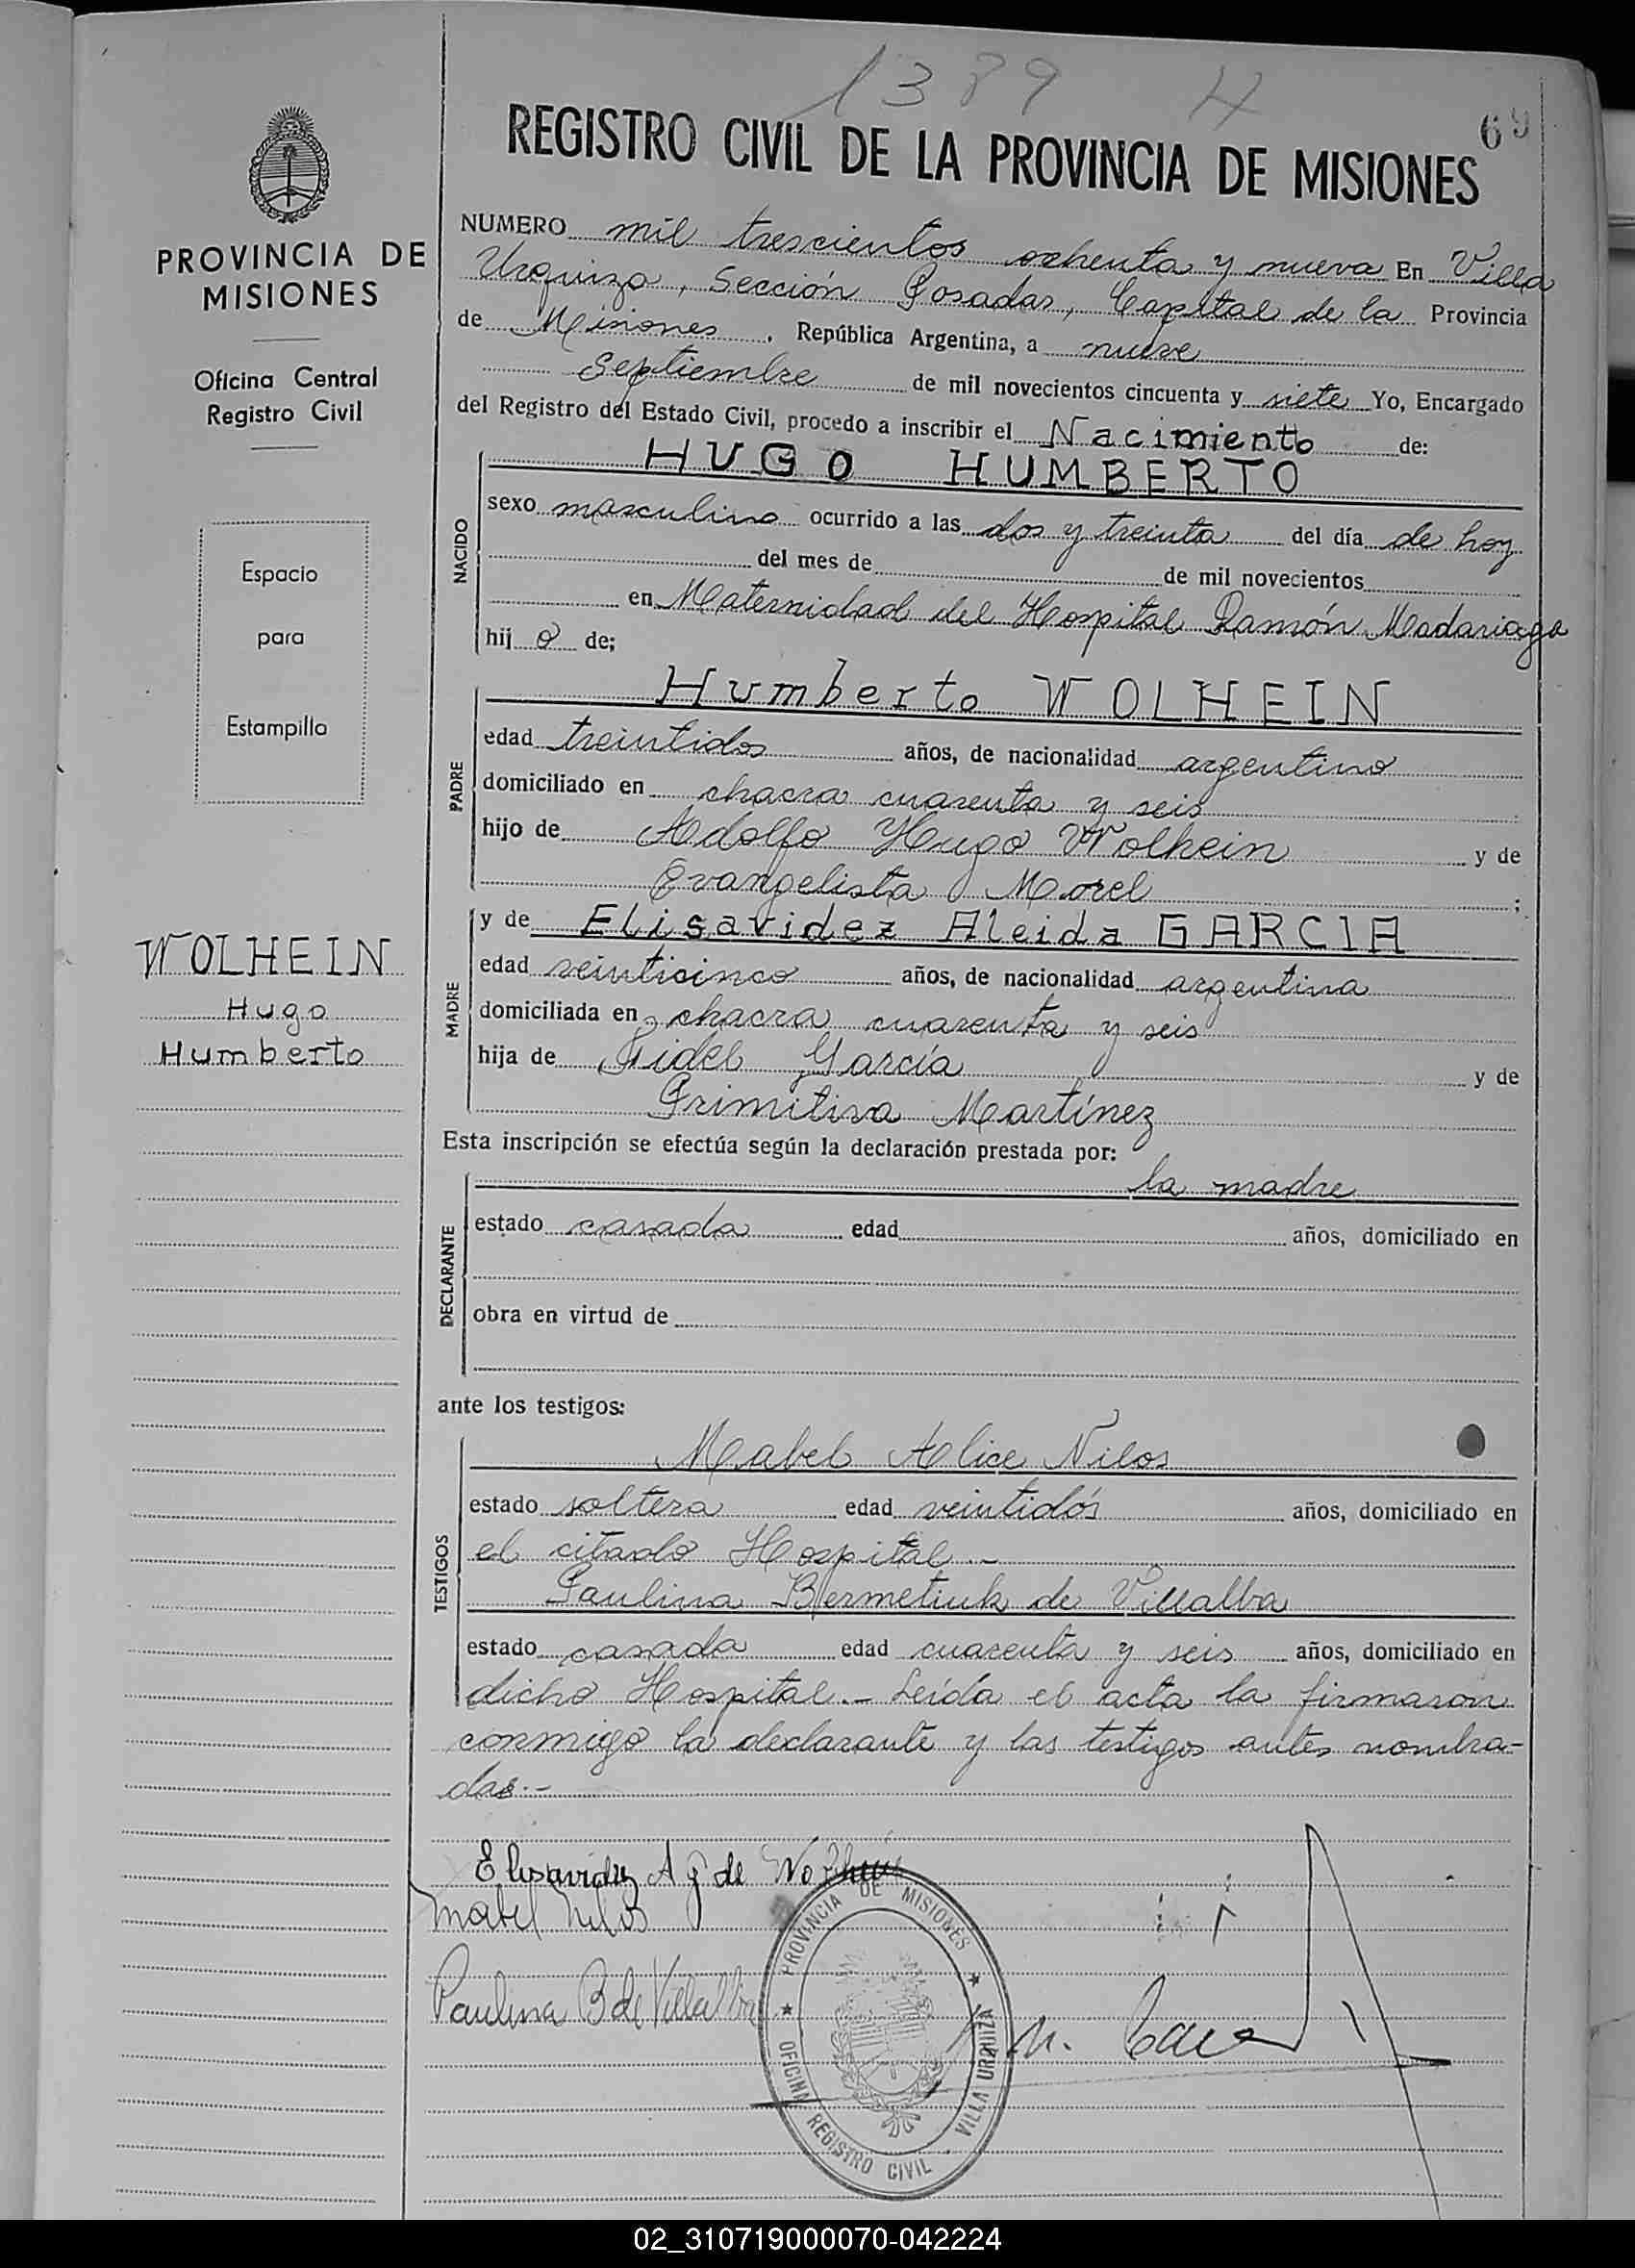 1389 4
69
REGISTRO CIVIL DE LA PROVINCIA DE MISIONES
PROVINCIA DE
MISIONES
Oficina Central
Registro Civil
Espacio
para
Estampilla
WOLHEIN
Hugo
Humberto
NUMERO mil trescientos ochenta y nueve En Villa
Urquiza, Sección Posadas, Capital de la Provincia
de Misiones, República Argentina, a nueve
Septiembre de mil novecientos cincuenta y siete Yo, Encargado
del Registro del Estado Civil, procedo a inscribir el Nacimiento de:
NACIDO
HUGO HUMBERTO
sexo masculino ocurrido a las dos y treinta del día de hoy
del mes de de mil novecientos
en Maternidad del Hospital Ramón Madariaga
hij o de;
PADRE
Humberto WOLHEIN
edad treintidos años, de nacionalidad argentino
domiciliado en chacra cuarenta y seis
hijo de Adolfo Hugo Wolhein y de
Evangelista Morel ;
MADRE
y de Elisavidez Aleida GARCIA
edad veinticinco años, de nacionalidad argentina
domiciliada en chacra cuarenta y seis
hija de Fidel García y de
Primitiva Martínez
Esta inscripción se efectúa según la declaración prestada por:
DECLARANTE
la madre
estado casada edad años, domiciliado en
obra en virtud de
ante los testigos:
TESTIGOS
Mabel Alice Nilos
estado soltera edad veintidós años, domiciliado en
el citado Hospital.-
Paulina Bermetiuk de Villalba
estado casada edad cuarenta y seis años, domiciliado en
dicho Hospital.- Leída el acta la firmaron
conmigo la declarante y las testigos antes nombra-
das.-
Elisavidez A G de Wolhein
Mabel Nilos
Paulina B de Villalba
PROVINCIA DE MISIONES
OFICINA REGISTRO CIVIL VILLA URQUIZA
02_310719000070-042224